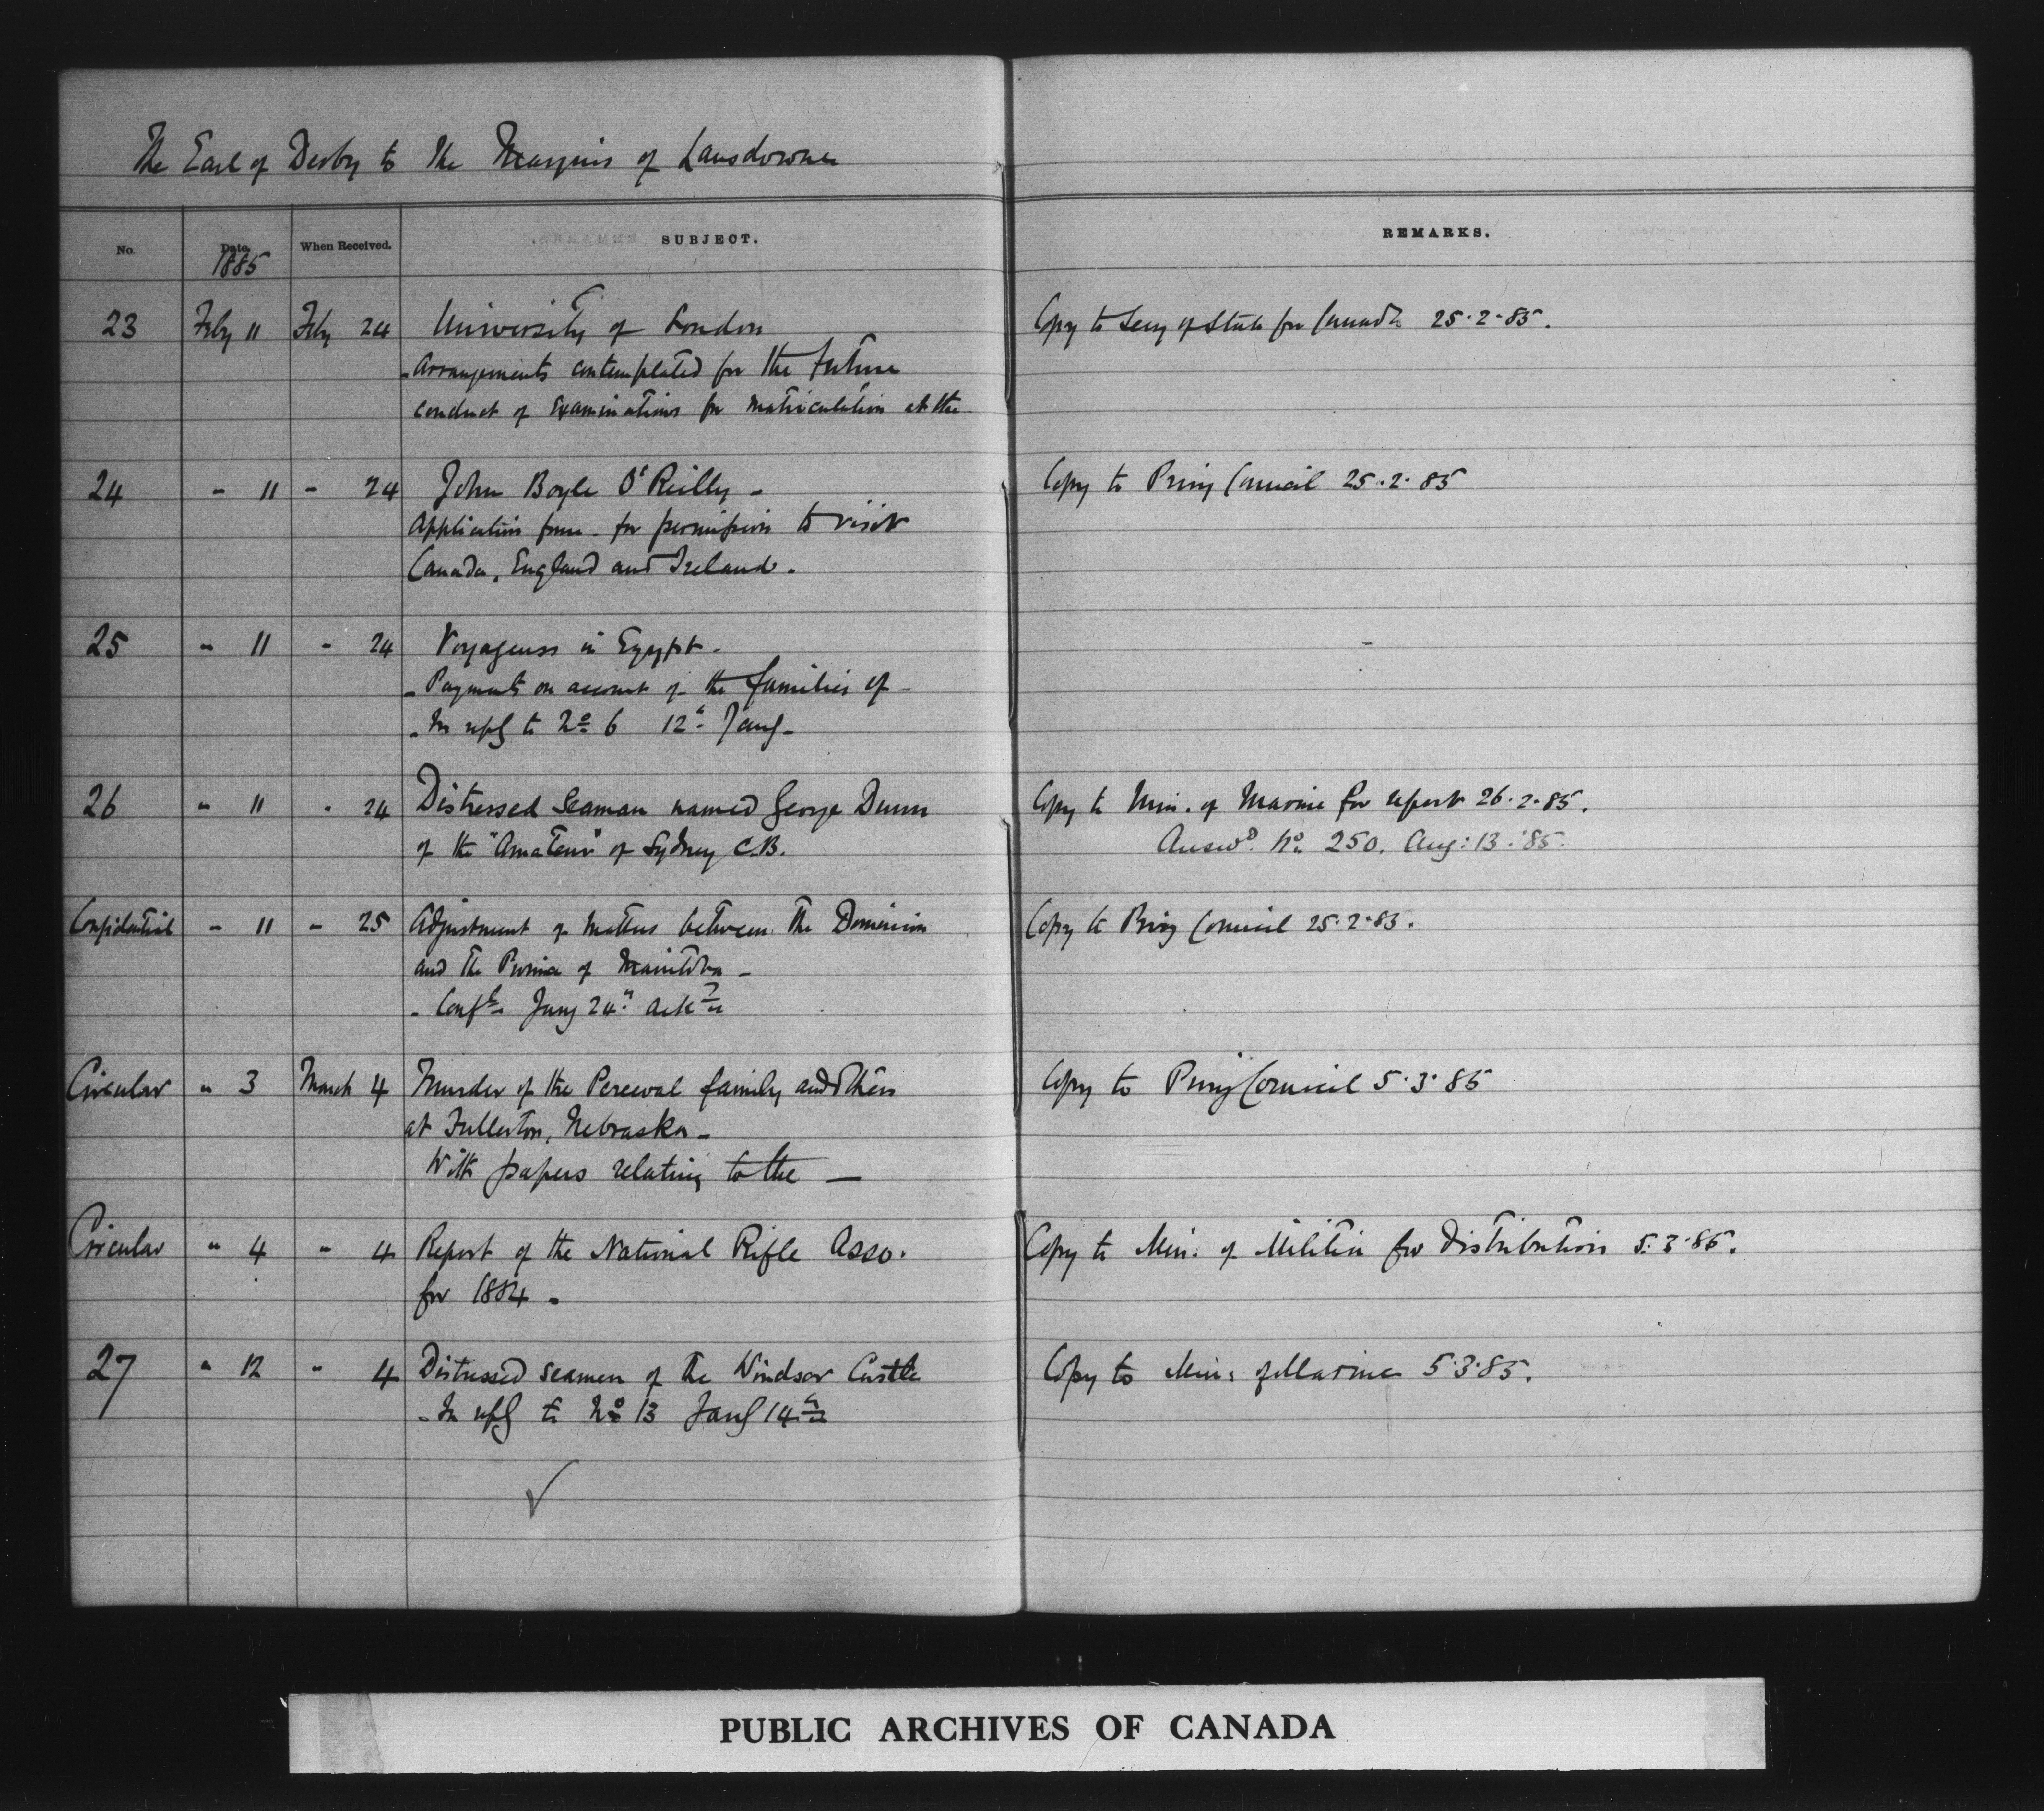 The Earl of Derby to The Marquis of Lansdowne
No. Date. When Received. SUBJECT. REMARKS.
1885
23 Feby 11 Feby 24 University of London Copy to Secy of State for Canada 25.2.85.
- Arrangements contemplated for the future
conduct of examinations for matriculation at the
24 - 11 - 24 John Boyle O'Reilly - Copy to Privy Council 25.2.85
Application from - for permission to visit
Canada, England and Ireland.
25 " 11 " 24 Voyageurs in Egypt -
- Payments on account of the families of -
- In reply to No 6 12th Jany -
26 " 11 " 24 Distressed Seaman named George Dunn Copy to Min. of Marine for report 26.2.85.
of the "Amateur" of Sydney C.B. Answd. No. 250. Aug: 13. '85.
Confidential - 11 - 25 Adjustment of matters between the Dominion Copy to Privy Council 25.2.85.
and the Province of Manitoba -
- Confl Jany 24th ackd
Circular " 3 March 4 Murder of the Percival family and others Copy to Privy Council 5.3.85
at Fullerton, Nebraska -
With papers relating to the —
Circular " 4 " 4 Report of the National Rifle Asso. Copy to Min. of Militia for distribution 5.3.85.
for 1884 -
27 " 12 " 4 Distressed seamen of the Windsor Castle Copy to Min. of Marine 5.3.85.
- In reply to No 13 Jany 14th
PUBLIC ARCHIVES OF CANADA